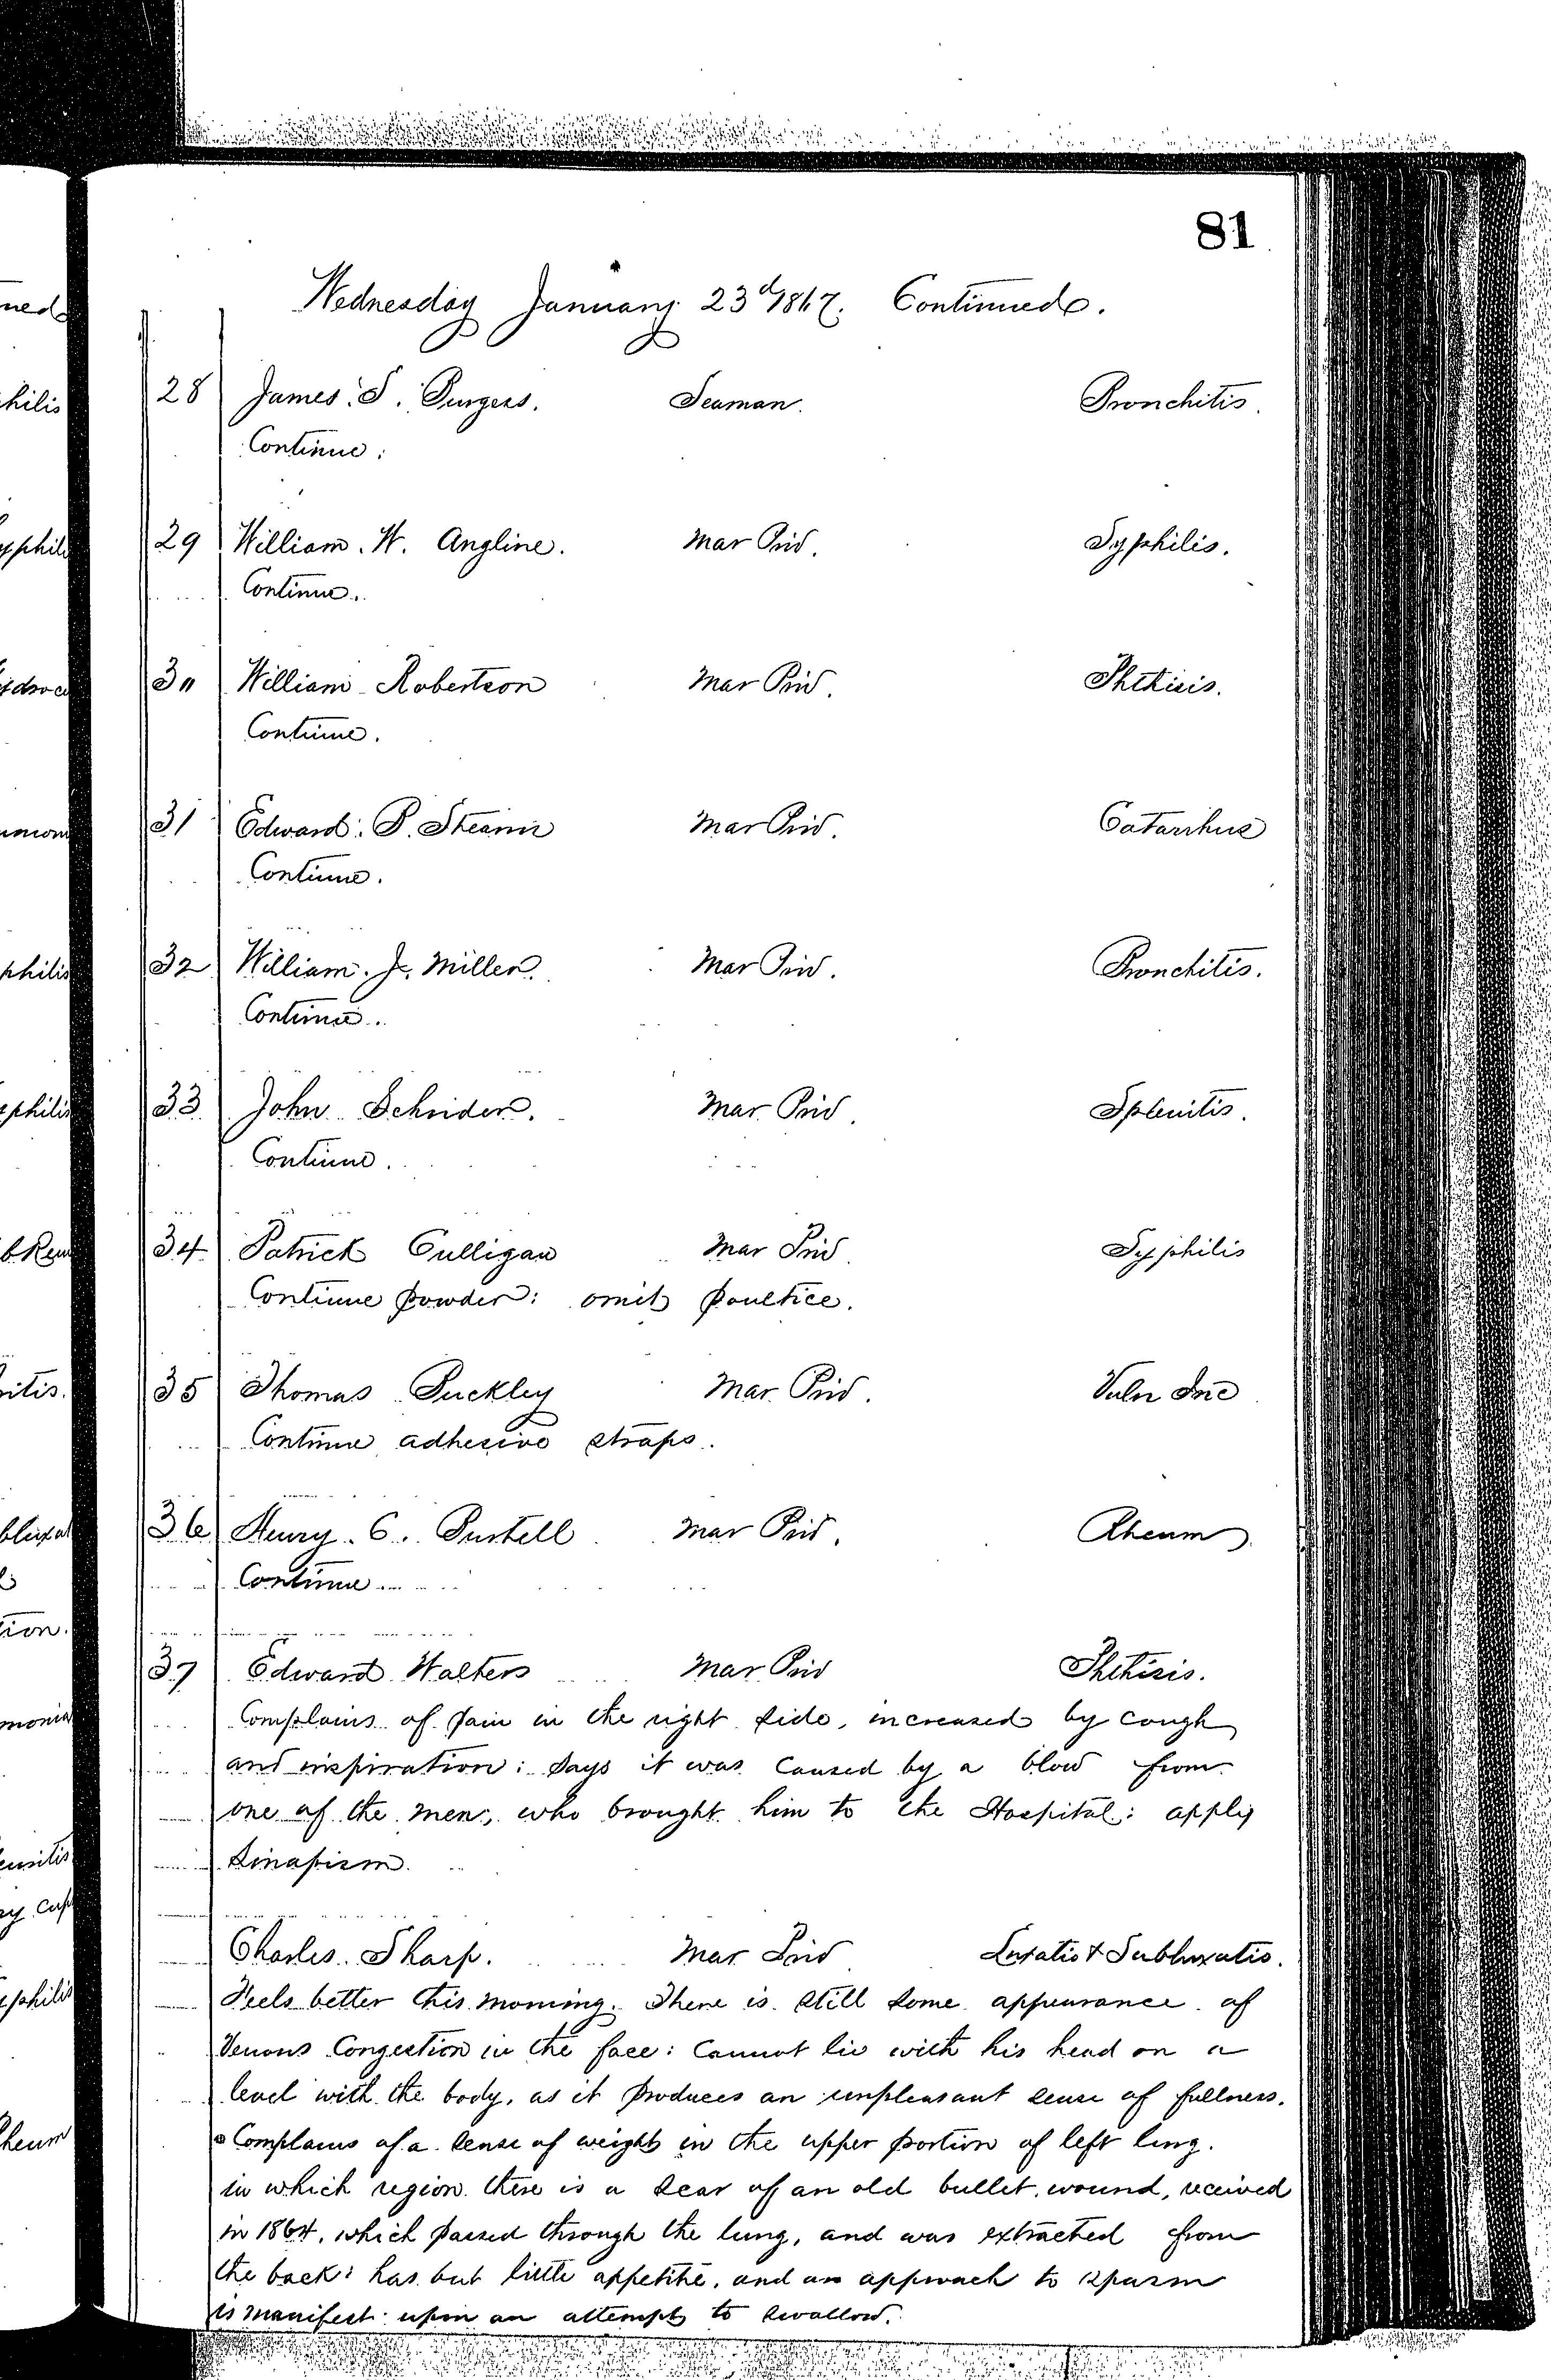 81
Wednesday January 23d 1867. Continued.
28 James. S. Burgess. Seaman. Bronchitis.
Continue.
29 William. W. Angline. Mar Priv. Syphilis.
Continue.
30 William Robertson Mar Priv. Phthisis.
Continue.
31 Edward. P. Stearn Mar Priv. Catarrhus
Continue.
32 William. J. Miller. Mar Priv. Bronchitis.
Continue.
33 John Schrider. Mar Priv. Splenitis.
Continue.
34 Patrick Culligan Mar Priv. Syphilis
Continue powder: omit poultice.
35 Thomas Buckley Mar Priv. Vuln Inc
Continue adhesive straps.
36 Henry. C. Mar Priv. Rheum
Continue
37 Edward Walters Mar Priv Phthisis.
Complains of pain in the right side, increased by cough
and inspiration: says it was caused by a blow from
one of the men, who brought him to the Hospital: apply
sinapism.
Charles Sharp. Mar Priv Luxatio & Subluxatio.
Feels better this morning. There is still some appearance of
Venous Congestion in the face: Cannot lie with his head on a
level with the body, as it produces an unpleasant sense of fullness.
Complains of a sense of weight in the upper portion of left lung.
in which region there is a scar of an old bullet wound, received
in 1864, which passed through the lung, and was extracted from
the back: has but little appetite, and an approach to spasm
is manifest upon an attempt to swallow.